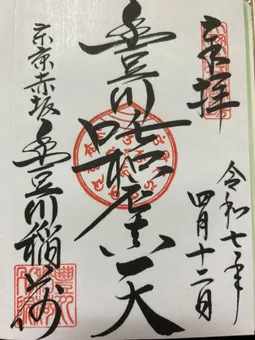 奉拝
令和七年
四月十二日
豊川吒枳尼真天
東京赤坂 豊川稲荷